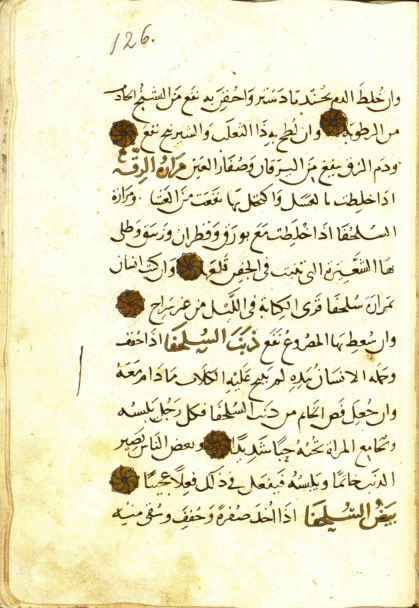 126.
وان خلط الدم بجندبادستر واحقن به نفع من التشنج الحادث
من الرطوبة وان لطخ به ذا الثعلب والشيرج نفع
ودم الرق ينفع من اليرقان وصفار العين مرارة الرقة
اذا خلطت بالعسل واكتحل بها نفعت من الغشا ومرارة
السلحفا اذا خلطت مع بورق وقطران وطلى
بها الشعيرة التى تنبت في الجفن قلعها وان كتب انسان
بمرارة سلحفا قرى الكتابة في الليل من غير سراج
وان سعط بها المصروع نفع ذنب السلحفا اذا جفف
وحمله الانسان بيده لم يهج عليه الكلاب مادام معه
وان جعل فص الخاتم من ذنب السلحفا فكل رجل يلبسه
ويجامع المراة تحبه حبا شديدا وبعض الناس يصير
الذنب خاتما ويلبسه فيفعل في ذلك فعلا عجيبا
بيض السلحفا اذا اخذ صفره وجفف وسقى منه